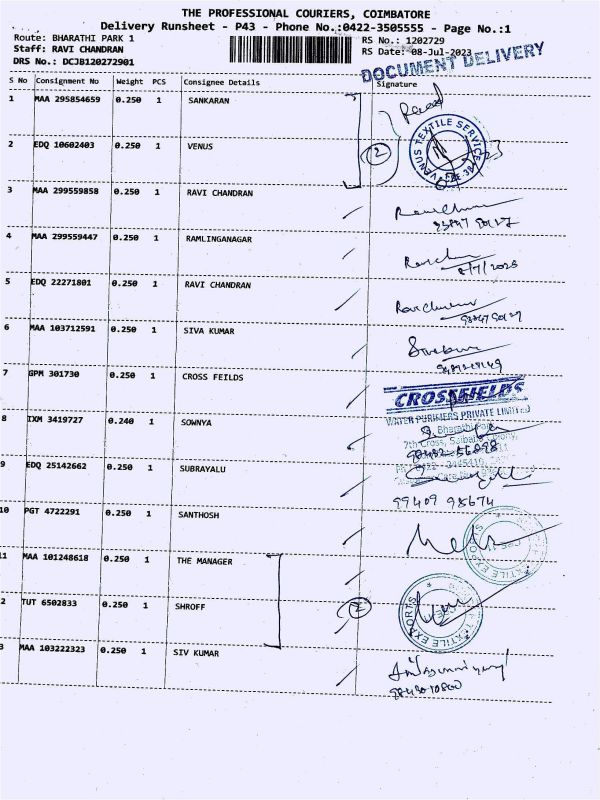 THE PROFESSIONAL COURIERS, COIMBATORE
Delivery Runsheet - P43 - Phone No.:0422-3505555 - Page No.:1
Route: BHARATHI PARK 1 RS No.: 1202729
Staff: RAVI CHANDRAN RS Date: 08-Jul-2023
DRS No.: DCJB120272901
DOCUMENT DELIVERY
S No Consignment No Weight PCS Consignee Details Signature
1 MAA 295854659 0.250 1 SANKARAN
VENUS TEXTILE SERVICE
2 EDQ 10602403 0.250 1 VENUS
2
3 MAA 299559858 0.250 1 RAVI CHANDRAN
4 MAA 299559447 0.250 1 RAMLINGANAGAR
8/7/2023
5 EDQ 22271801 0.250 1 RAVI CHANDRAN
6 MAA 103712591 0.250 1 SIVA KUMAR
7 GPM 301730 0.250 1 CROSS FEILDS
CROSSFIELDS
WATER PURIFIERS PRIVATE LIMITED
8 IXM 3419727 0.240 1 SOWNYA
7th Cross, Saibaba Colony,
9 EDQ 25142662 0.250 1 SUBRAYALU
99409 98674
10 PGT 4722291 0.250 1 SANTHOSH
11 MAA 101248618 0.250 1 THE MANAGER
2 TUT 6502833 0.250 1 SHROFF
2
TEXTILE EXPORTS
3 MAA 103222323 0.250 1 SIV KUMAR